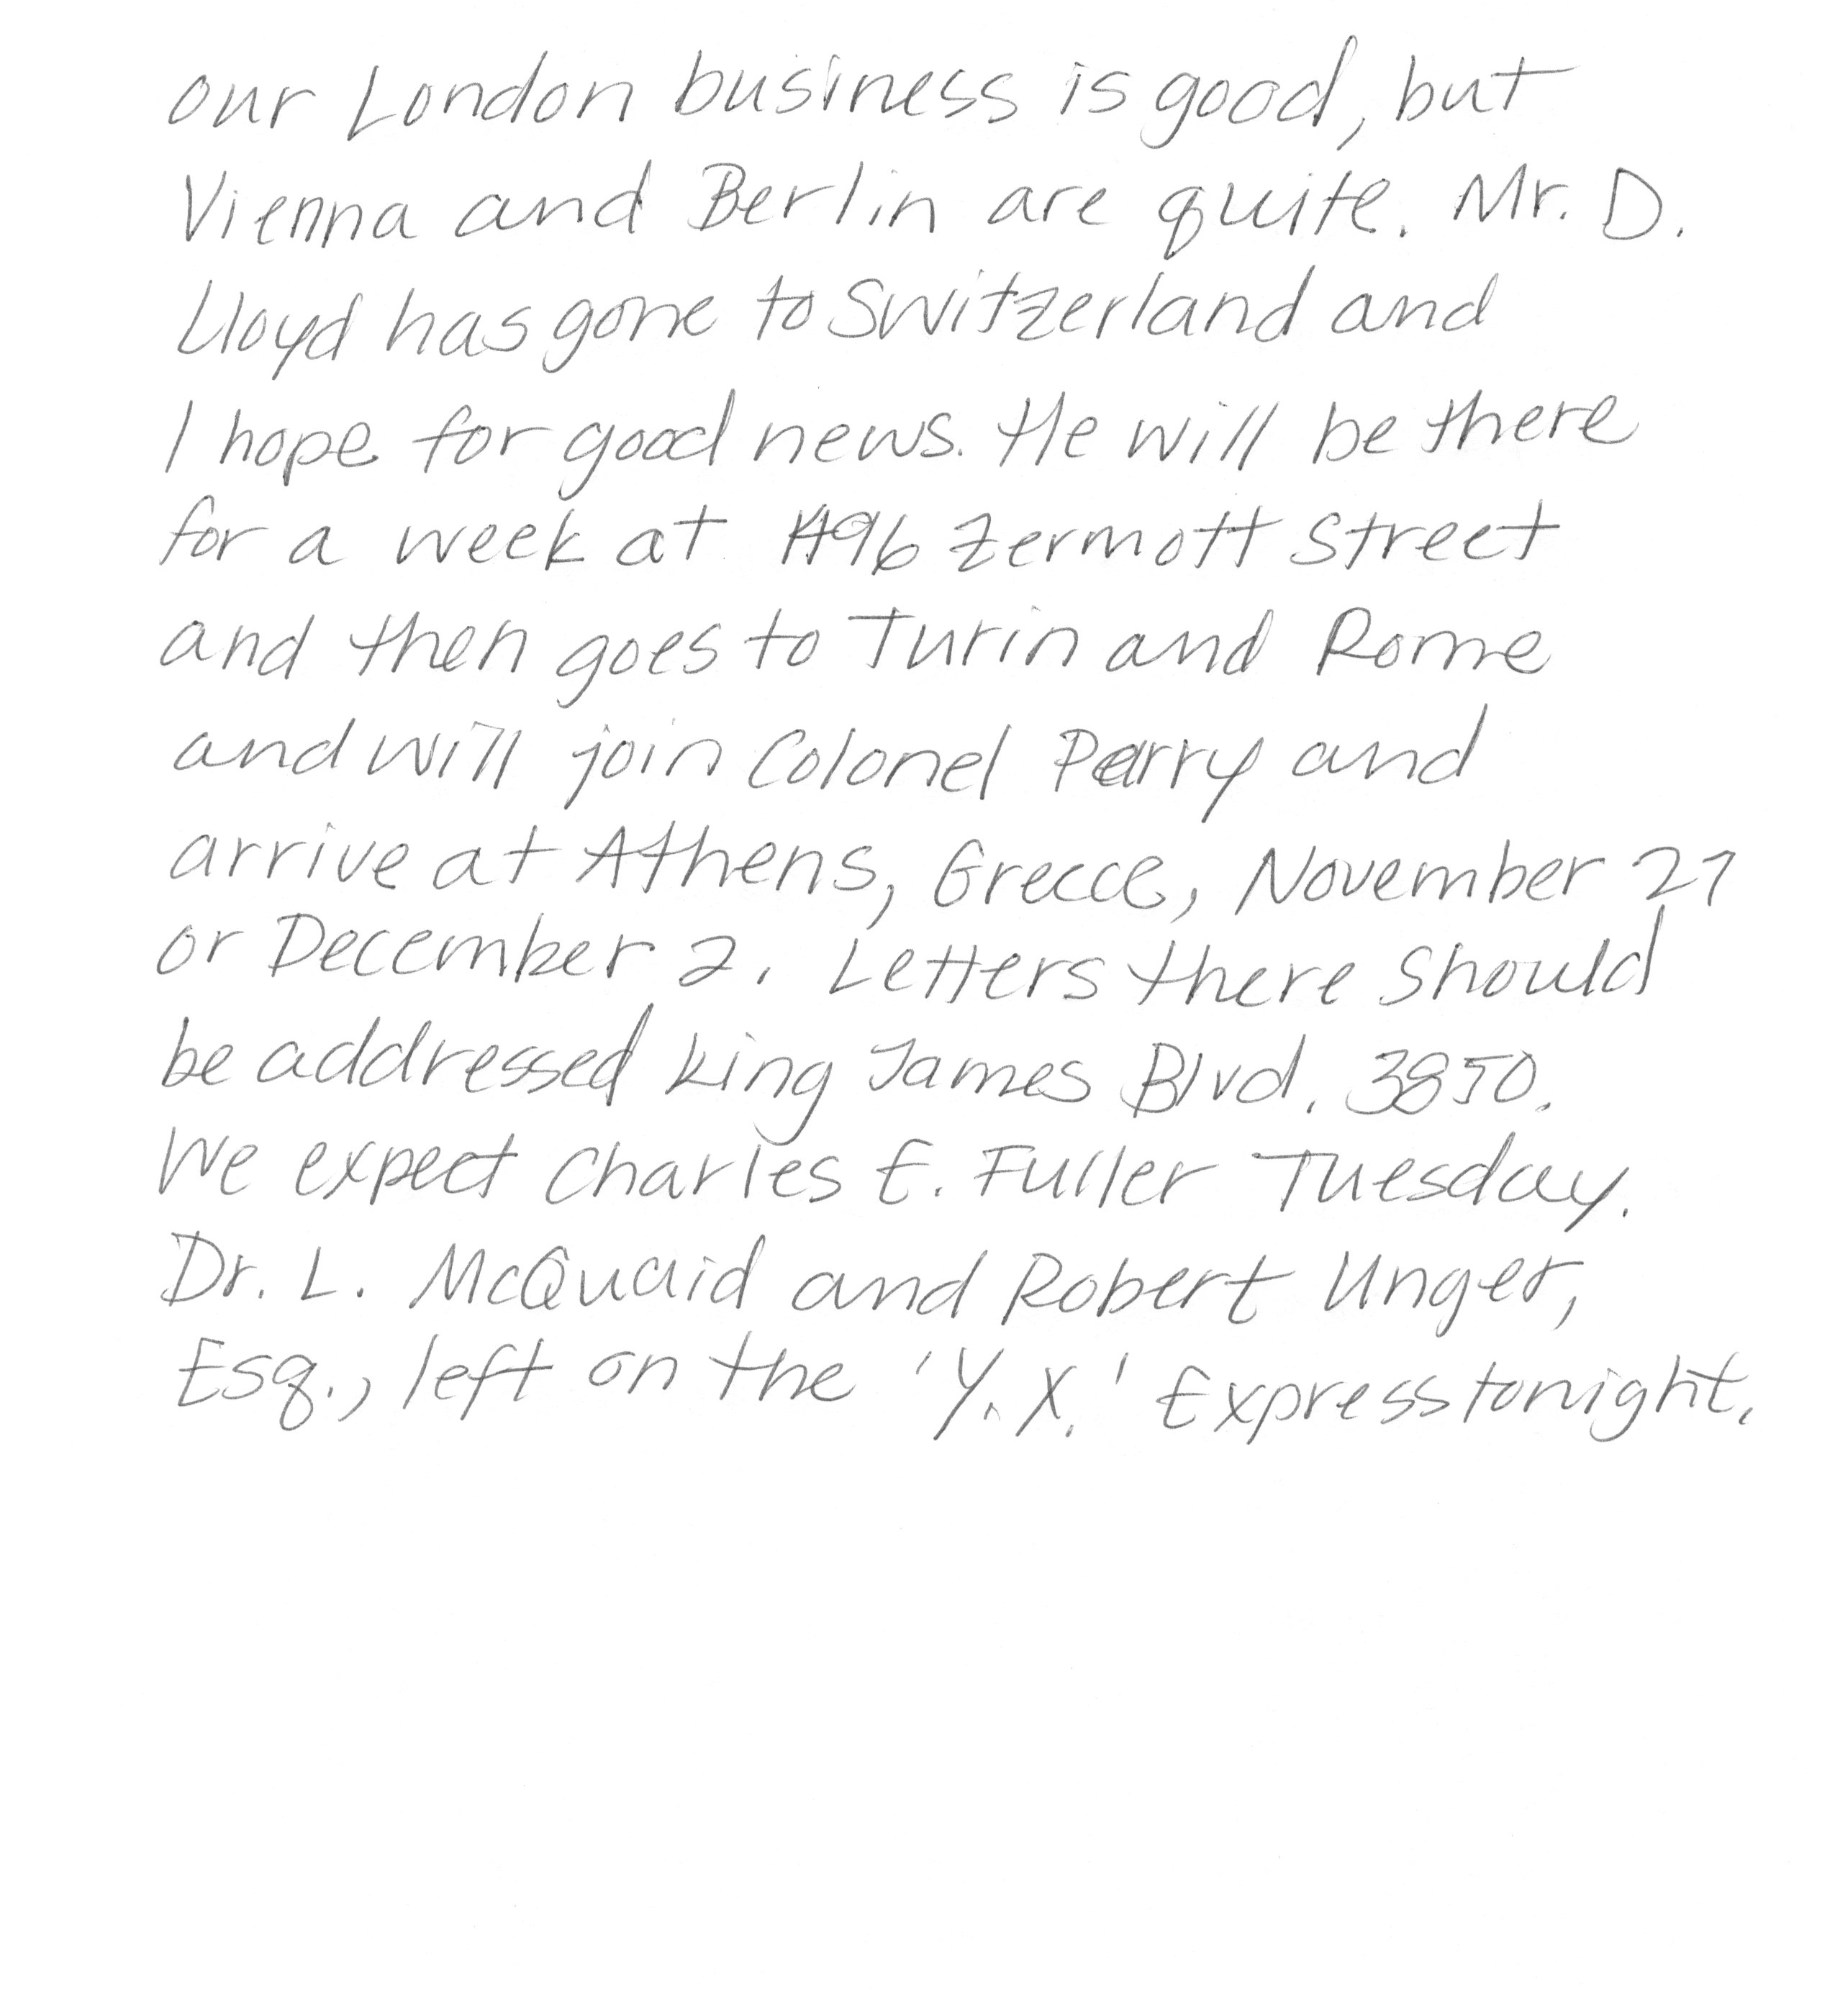 our London business is good, but
Vienna and Berlin are quite. Mr. D.
Lloyd has gone to Switzerland and
I hope for good news. He will be there
for a week at 1496 Zermott Street
and then goes to Turin and Rome
and will join Colonel Parry and
arrive at Athens, Greece, November 27
or December 2. Letters there should
be addressed King James Blvd. 3850.
We expect Charles E. Fuller Tuesday.
Dr. L. McQuaid and Robert Unger,
Esq., left on the 'Y. X.' Express tonight.